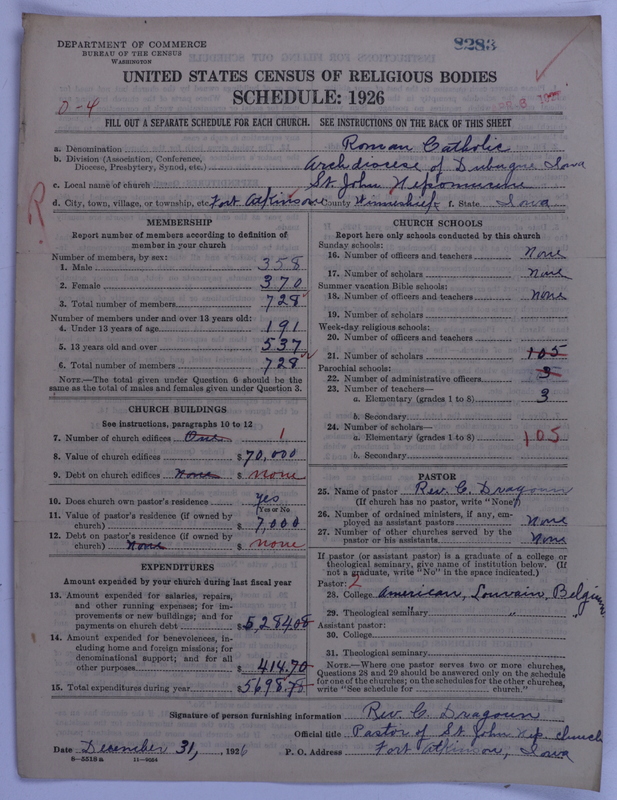 DEPARTMENT OF COMMERCE
BUREAU OF THE CENSUS
WASHINGTON
8283
UNITED STATES CENSUS OF RELIGIOUS BODIES
SCHEDULE: 1926
0-4
APR 8
FILL OUT A SEPARATE SCHEDULE FOR EACH CHURCH. SEE INSTRUCTIONS ON THE BACK OF THIS SHEET
a. Denomination Roman Catholic
b. Division (Association, Conference, Diocese, Presbytery, Synod, etc.) Archdiocese of Dubuque Iowa
c. Local name of church St. John Nepomucene
d. City, town, village, or township, etc. Fort Atkinson County Winneshiek f. State Iowa
R
MEMBERSHIP
Report number of members according to definition of member in your church
Number of members, by sex:
1. Male 358
2. Female 370
3. Total number of members 728
Number of members under and over 13 years old:
4. Under 13 years of age 191
5. 13 years old and over 537
6. Total number of members 728
NOTE.—The total given under Question 6 should be the same as the total of males and females given under Question 3.
CHURCH BUILDINGS
See instructions, paragraphs 10 to 12
7. Number of church edifices One 1
8. Value of church edifices $ 70,000
9. Debt on church edifices None $ none
10. Does church own pastor's residence yes
(Yes or No)
11. Value of pastor's residence (if owned by church) $ 7,000
12. Debt on pastor's residence (if owned by church) None $ none
EXPENDITURES
Amount expended by your church during last fiscal year
13. Amount expended for salaries, repairs, and other running expenses; for improvements or new buildings; and for payments on church debt $ 5,284.08
14. Amount expended for benevolences, including home and foreign missions; for denominational support; and for all other purposes $ 414.70
15. Total expenditures during year $ 5698.78
CHURCH SCHOOLS
Report here only schools conducted by this church
Sunday schools:
16. Number of officers and teachers None
17. Number of scholars None
Summer vacation Bible schools:
18. Number of officers and teachers None
19. Number of scholars
Week-day religious schools:
20. Number of officers and teachers
21. Number of scholars 105
Parochial schools:
22. Number of administrative officers 3
23. Number of teachers—
a. Elementary (grades 1 to 8) 3
b. Secondary
24. Number of scholars—
a. Elementary (grades 1 to 8) 105
b. Secondary
PASTOR
25. Name of pastor Rev. C. Dragoun
(If church has no pastor, write "None")
26. Number of ordained ministers, if any, employed as assistant pastors None
27. Number of other churches served by the pastor or his assistants None
If pastor (or assistant pastor) is a graduate of a college or theological seminary, give name of institution below. (If not a graduate, write "No" in the space indicated.)
Pastor: 2
28. College American, Louvain, Belgium
29. Theological seminary " "
Assistant pastor:
30. College
31. Theological seminary
NOTE.—Where one pastor serves two or more churches, Questions 28 and 29 should be answered only on the schedule for one of the churches; on the schedules for the other churches, write "See schedule for church."
Signature of person furnishing information Rev. C. Dragoun
Official title Pastor of St. John Nep. church
Date December 31, 1926 P. O. Address Fort Atkinson, Iowa
8—5518 a 11—9034